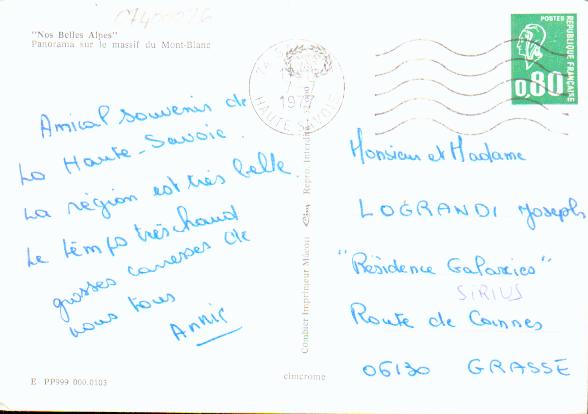 "Nos Belles Alpes"
Panorama sur le massif du Mont-Blanc
POSTES
REPUBLIQUE FRANÇAISE
0,80
HAUTE SAVOIE
Amical souvenir de
La Haute-Savoie.
La région est très belle.
Le temps très chaud
grosses caresses de
nous tous
Annie
Monsieur et Madame
LOGRANDI Joseph
"Résidence Galaxies"
SIRIUS
Route de Cannes
06130 GRASSE
Combier Imprimeur Mâcon Cim Repro. Interdite
cimcrome
E PP999 000.0103